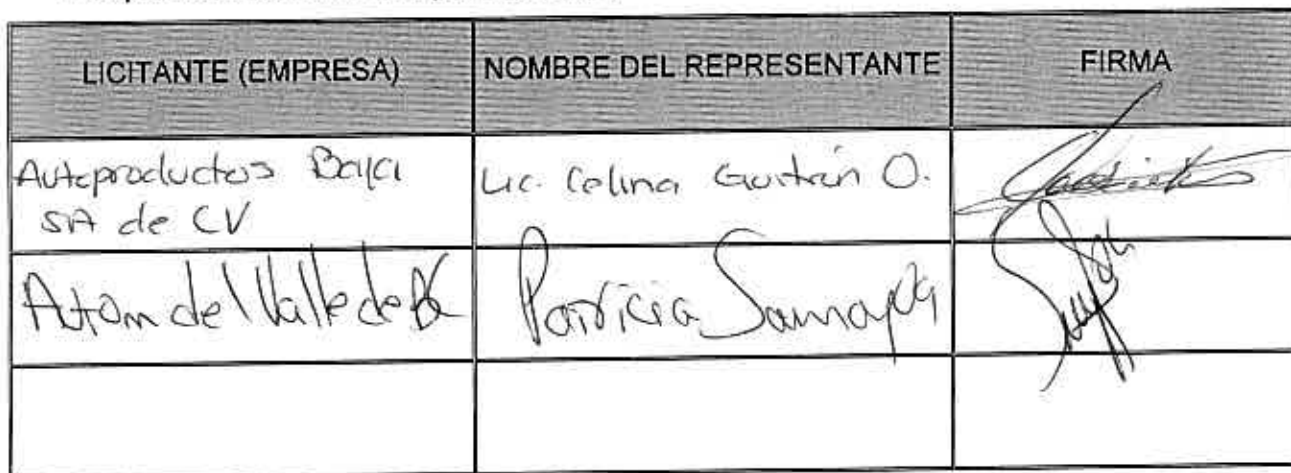 LICITANTE (EMPRESA) NOMBRE DEL REPRESENTANTE FIRMA
Autoproductos Baja Lic. Celina Gaitán O.
SA de CV
Autom del Valle de BC Patricia